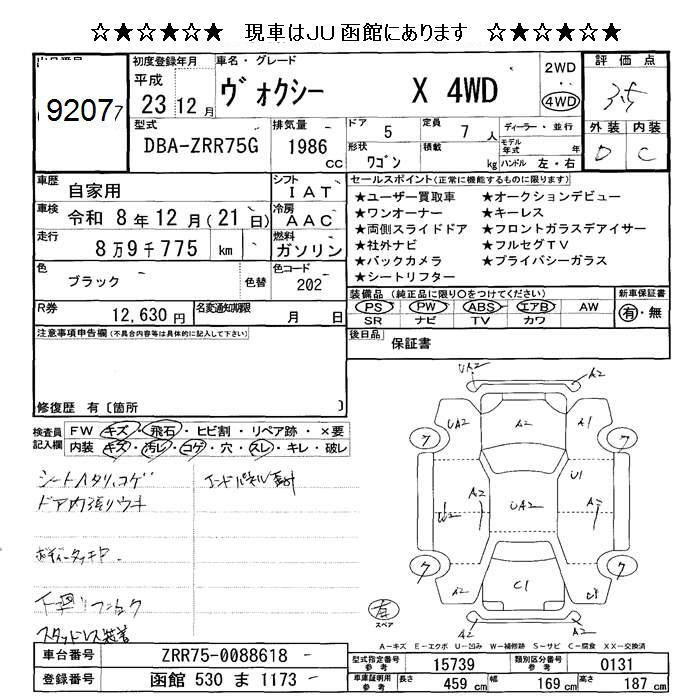 ☆★☆★☆★☆ 現車はJU函館にあります ☆★☆★☆★☆
92077
初度登録年月 平成 23 12 月
車名・グレード ヴォクシー X 4WD
2WD 4WD
評価点 3.5
外装 内装
D C
型式 DBA-ZRR75G
排気量 1986 cc
ドア 5
定員 7 人
形状 ワゴン
積載 kg
ディーラー・並行
モデル年式 年
ハンドル 左・右
車歴 自家用
シフト IAT
車検 令和 8 年 12 月 (21 日)
冷房 AAC
走行 8 万 9 千 775 km
燃料 ガソリン
色 ブラック 色替
色コード 202
R券 12,630 円
名変通知期限 月 日
セールスポイント(正常に機能するものに限ります)
★ユーザー買取車 ★オークションデビュー
★ワンオーナー ★キーレス
★両側スライドドア ★フロントガラスデアイサー
★社外ナビ ★フルセグTV
★バックカメラ ★プライバシーガラス
★シートリフター
装備品(純正品に限り○をつけてください)
PS PW ABS エアB AW
SR ナビ TV カワ
新車保証書
有・無
後日品 保証書
注意事項申告欄(不具合内容等は具体的に記入して下さい)
修復歴 有〔箇所 〕
検査員記入欄
FW キズ・飛石・ヒビ割・リペア跡・×要
内装 キズ・汚レ・コゲ・穴・スレ・キレ・破レ
シートヘタリ、コゲ
ドア内張リウキ
ボディータッチP
下廻リ
スタッドレス装着
UA2 A2
UA2 A2 A1
ワ ワ
U1
A2 UA2 A2
W2
ワ ワ
A2 C1
A2 A2
有
スペア
A－キズ E－エクボ U－凹み W－補修跡 S－サビ C－腐食 XX－交換済
車台番号 ZRR75-0088618
登録番号 函館 530 ま 1173
型式指定番号 参考 15739
類別区分番号 参考 0131
車庫証明用 参考 長さ 459 cm 幅 169 cm 高さ 187 cm